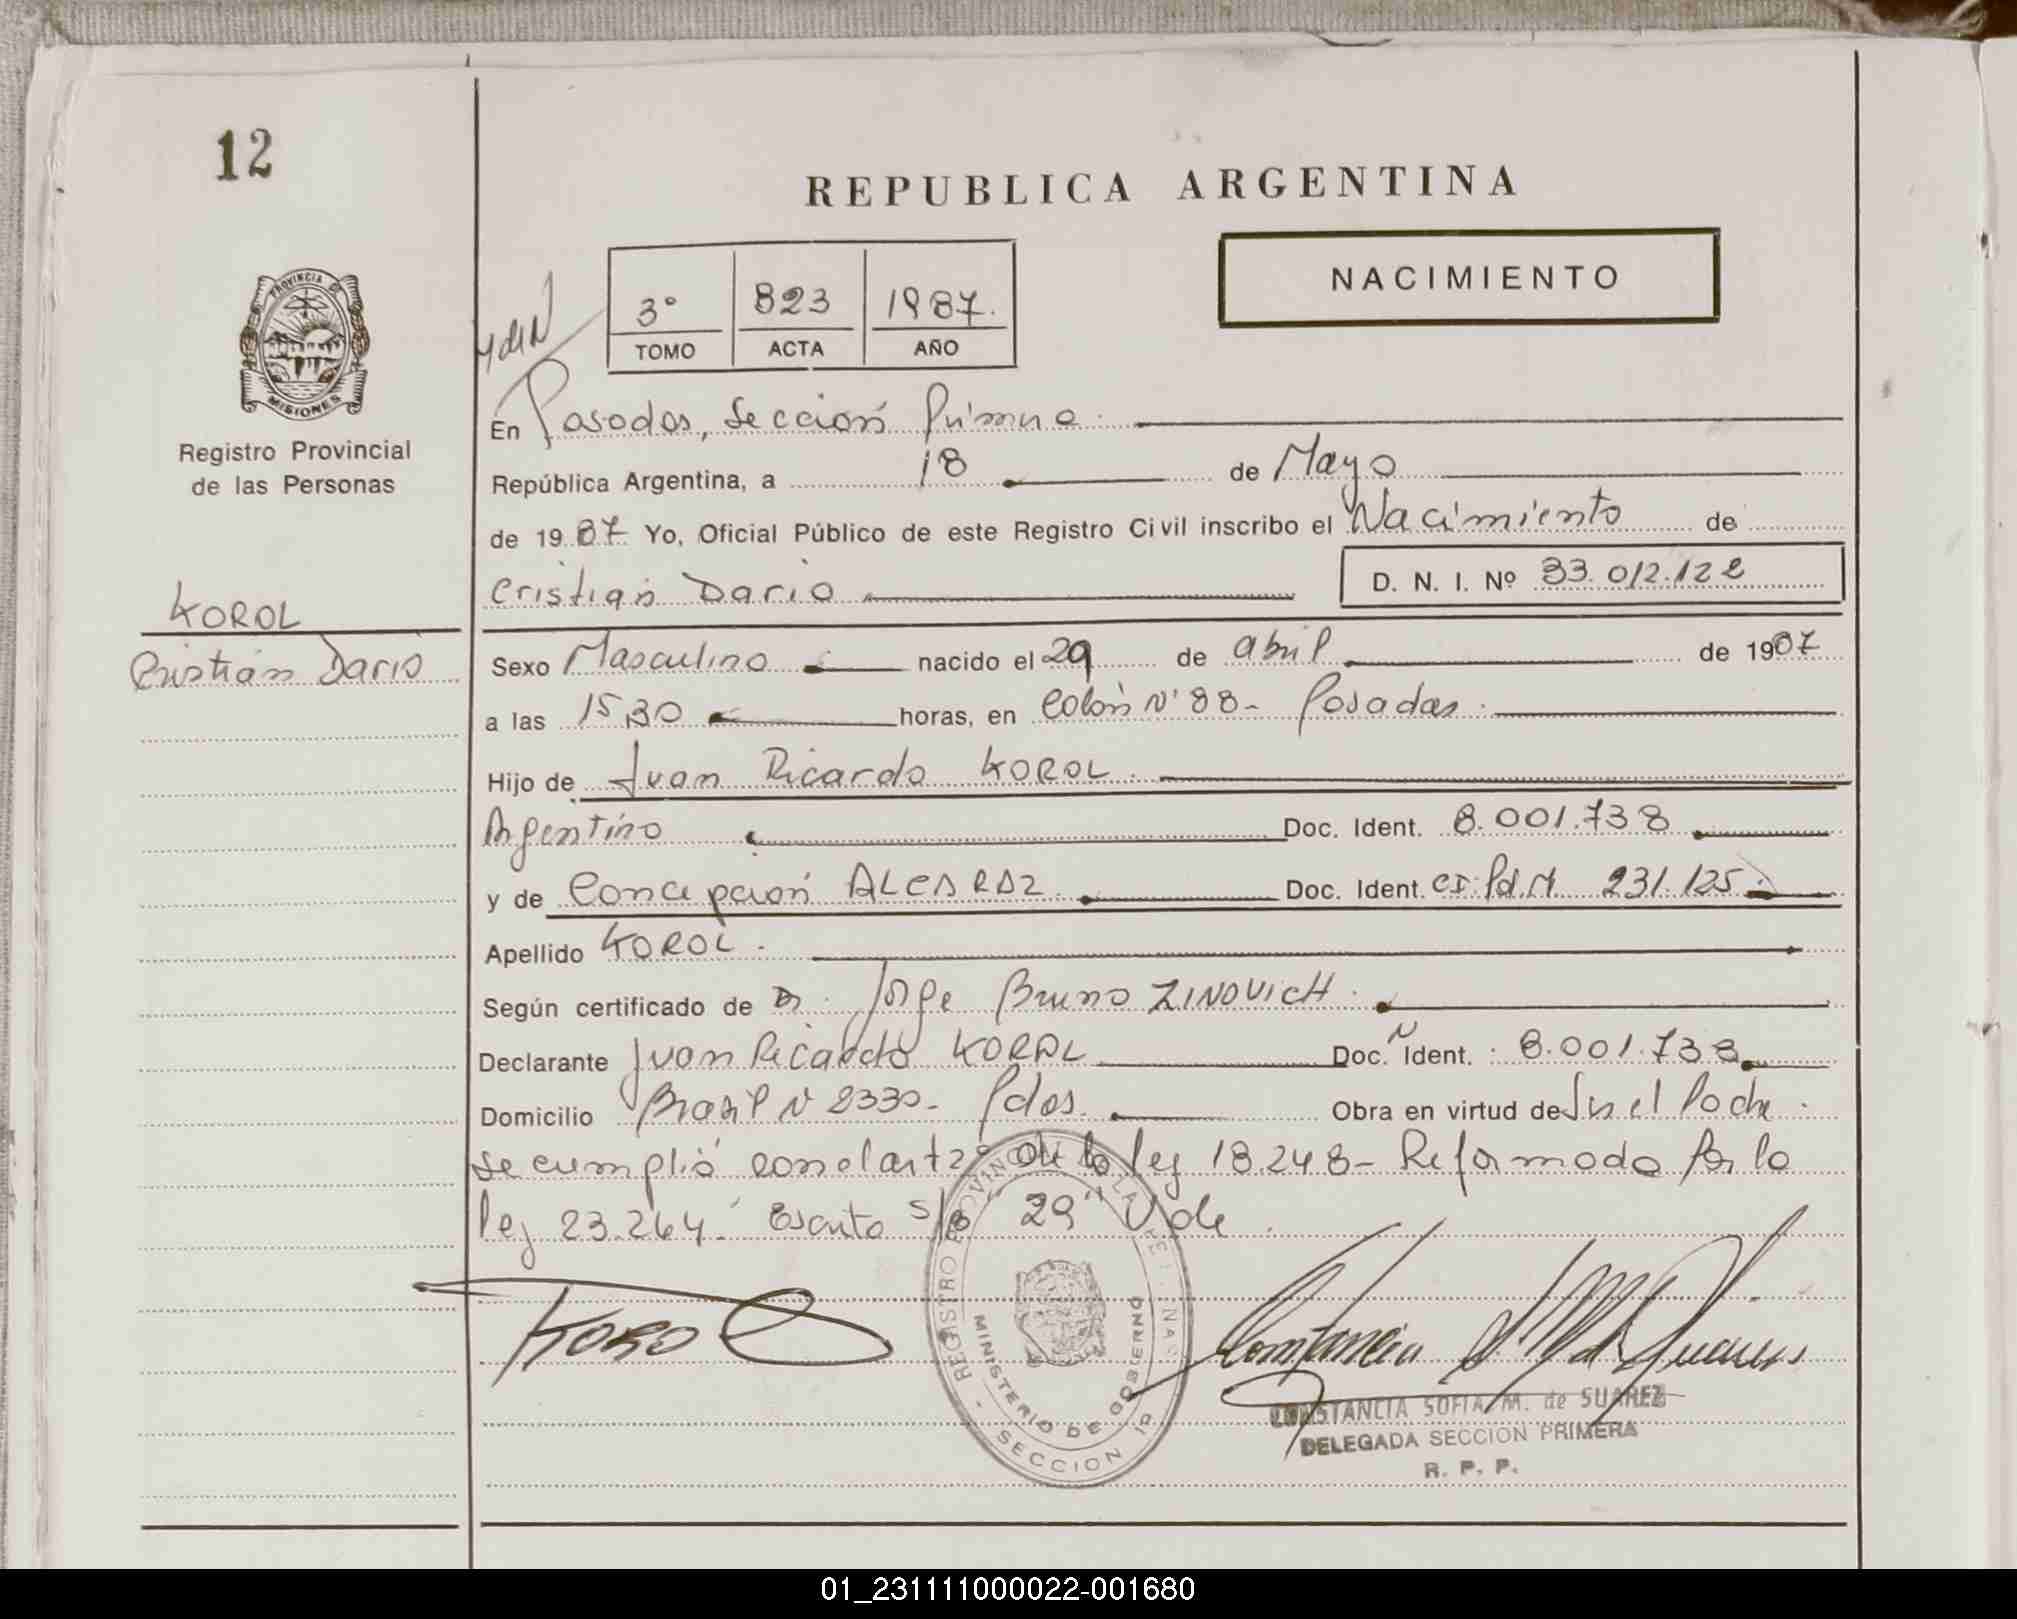 12
REPUBLICA ARGENTINA
NACIMIENTO
3º 823 1987.
TOMO ACTA AÑO
PROVINCIA DE
MISIONES
Registro Provincial
de las Personas
KOROL
Cristian Dario
En Posadas, Sección Primera.
República Argentina, a 18 de Mayo
de 1987 Yo, Oficial Público de este Registro Civil inscribo el Nacimiento de
Cristian Dario D. N. I. Nº 33.012.122
Sexo Masculino nacido el 29 de abril de 1987
a las 15,30 horas, en Colón Nº 88 - Posadas.
Hijo de Juan Ricardo KOROL.
Argentino Doc. Ident. 8.001.738
y de Concepción ALCARAZ Doc. Ident. CI. Pd.M 231.125
Apellido KOROL.
Según certificado de Dr. Jorge Bruno ZINOVICH.
Declarante Juan Ricardo KOROL Doc. Ident. : 8.001.738
Domicilio Brasil N 2330- Pdas. Obra en virtud de Ser el Padre.
Se cumplió con el art 2º de la ley 18.248- Reformada por la
ley 23.264. Escrito s/r 29" Vale.
KOROL
REGISTRO PROVINCIAL DE LAS PERSONAS
MINISTERIO DE GOBIERNO
SECCION 1º
Constancia S. M de Suarez
CONSTANCIA SOFIA M. de SUAREZ
DELEGADA SECCION PRIMERA
R. P. P.
01_231111000022-001680